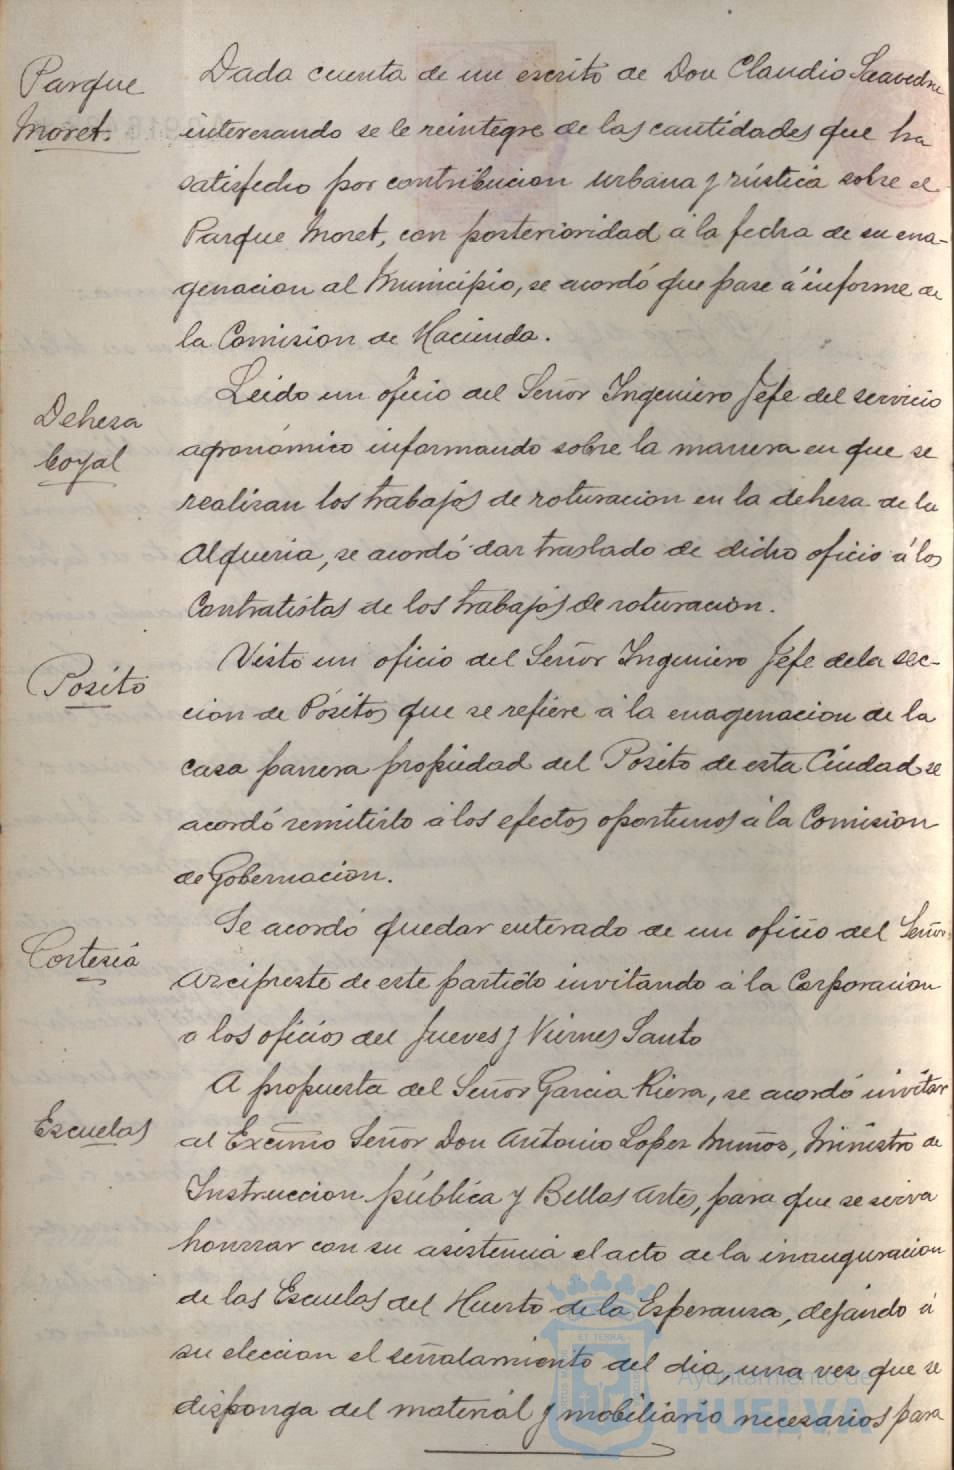 Parque
Moret.
Dada cuenta de un escrito de Don Claudio Saavedra
interesando se le reintegre de las cantidades que ha
satisfecho por contribucion urbana y rústica sobre el
Parque Moret, con posterioridad á la fecha de su ena-
genacion al Municipio, se acordó que pase á informe de
la Comision de Hacienda.
Dehesa
boyal
Leido un oficio del Señor Ingeniero Jefe del servicio
agronómico informando sobre la manera en que se
realizan los trabajos de roturacion en la dehesa de la
Alqueria, se acordó dar traslado de dicho oficio á los
Contratistas de los trabajos de roturacion.
Pósito
Visto un oficio del Señor Ingeniero Jefe de la sec-
cion de Pósitos que se refiere á la enagenacion de la
casa panera propiedad del Posito de esta Ciudad se
acordó remitirlo á los efectos oportunos á la Comision
de Gobernacion.
Cortesia
Se acordó quedar enterado de un oficio del Señor
Arcipreste de este partido invitando á la Corporacion
a los oficios del Jueves y Viernes Santo
Escuelas
A propuesta del Señor Garcia Riera, se acordó invitar
al Excmo Señor Don Antonio Lopez Muños, Ministro de
Instruccion pública y Bellas Artes, para que se sirva
honrrar con su asistencia el acto de la inauguracion
de las Escuelas del Huerto de la Esperanza, dejando á
su eleccion el señalamiento del dia, una vez que se
disponga del material y mobiliario necesarios para
ET TERRA
Ayuntamiento de
HUELVA